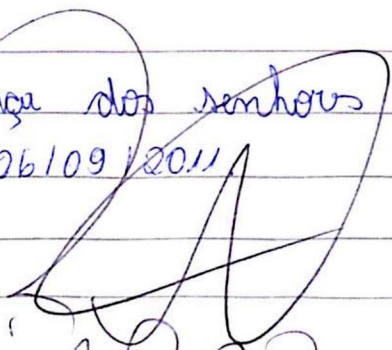 ça dos senhores
06/09/2011.